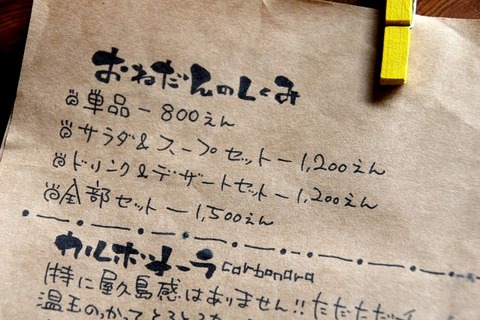 おねだんのしくみ
単品ー800えん
サラダ&スープセットー1,200えん
ドリンク&デザートセットー1,200えん
全部セットー1,500えん
カルボナーラ carbonara
特に屋久島感はありません!!ただただ
温玉のかってとろとろ